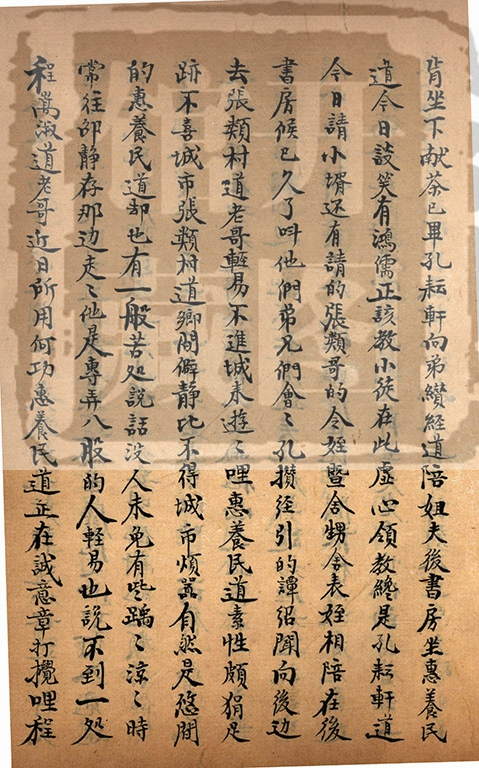 肯坐下献茶已畢孔耘軒向弟纉經道陪姐夫後書房坐惠養民
道今日談笑有鴻儒正該教小徒在此虛心領教纔是孔耘軒道
今日請小壻还有請的張類哥的令姪暨舍甥舍表姪相陪在後
書房候已久了叫他們弟兄們會〻孔攢經引的譚紹聞向後边
去張類村道老哥輕易不進城來遊〻哩惠養民道素性頗狷足
跡不喜城市張類村道鄉間僻静比不得城市煩囂自然是悠閒
的惠養民道却也有一般苦処說話没人未免有些踽〻涼〻時
常往邵静存那边走〻他是專弄八股的人輕易也說不到一処
程嵩淑道老哥近日所用何功惠養民道正在誠意章打攪哩程